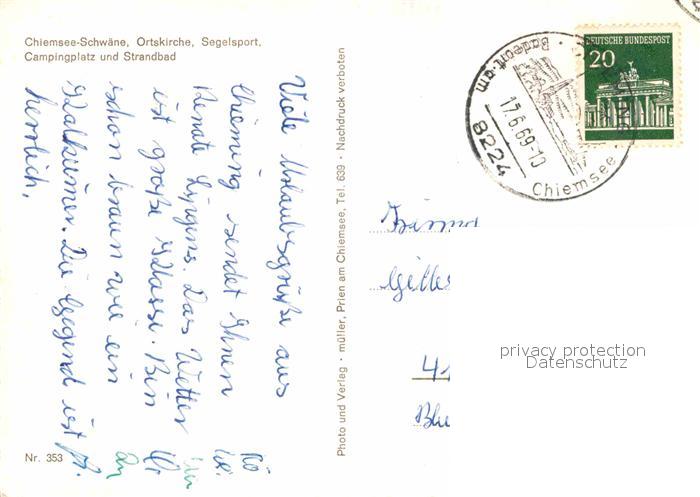 Chiemsee-Schwäne, Ortskirche, Segelsport,
Campingplatz und Strandbad
Viele Urlaubsgrüße aus
Chieming sendet Ihnen
Renate Lipgens. Das Wetter
ist große Klasse. Bin
schon braun wie ein
Kalkeimer. Die Gegend ist
herrlich.
Nr. 353
Photo und Verlag · müller, Prien am Chiemsee, Tel. 639 · Nachdruck verboten
DEUTSCHE BUNDESPOST
20
Badeort am
17.6.69-10
8224
Chiemsee
Firma
privacy protection
Datenschutz